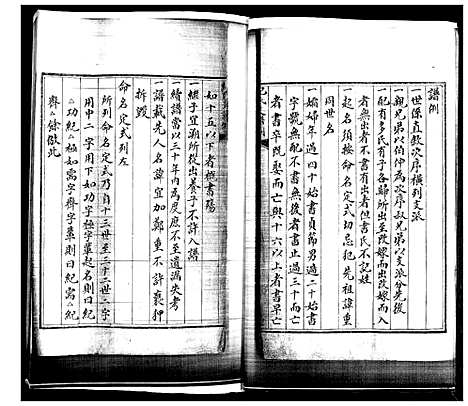 譜例
一世係直敘次序橫列支派
一親兄弟以伯仲為次序叔兄弟以支派分先後
一配有多氏有子各歸所出至改嫁而出改嫁入
者無出者不書有出者但書氏不記姓
一起名須按命名定式切忌犯先祖諱重
同世名
一孀婦年過四十始書貞節男過二十始書
字號無配不書無後者書止過三十而亡
者書卒既娶而亡與十六以上者書早亡
如十五以下者概書殤
一繼子宜溯所從出養子不許入譜
一續譜當以三十年內為度庶不至遺漏失考
一譜載先人名諱宜加鄭重不許褻狎
拆毀
命名定式列左
所列命名定式乃自十三世至三十二世二字
用中二字用下如功字極字輩起名則曰紀
功紀極如富字齊字輩則曰紀富紀
齊餘倣此